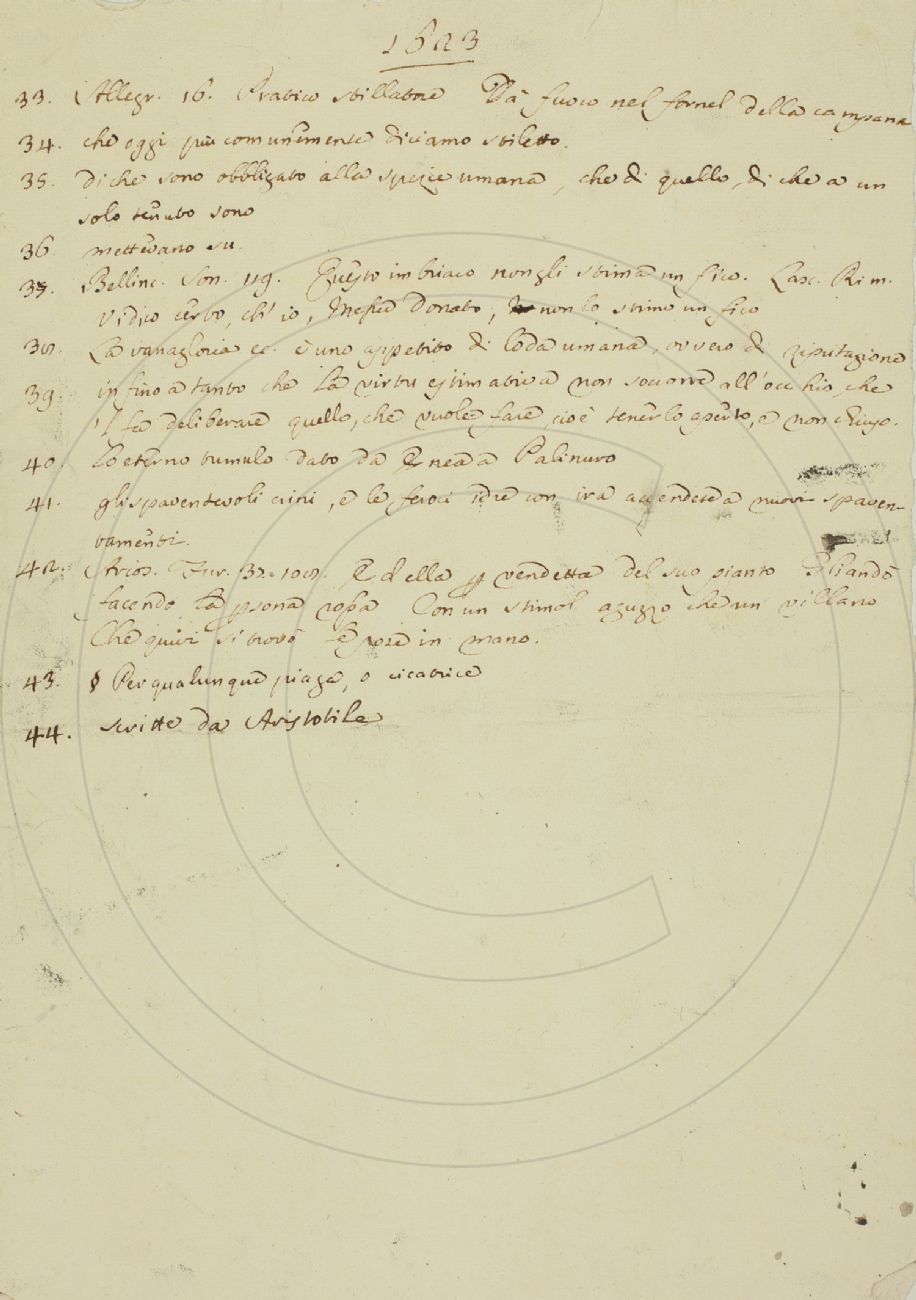 1623
33. Allegr. 16. Pratico stillatore Dà fuoco nel fornel della campana
34. che oggi più comunemente diciamo stiletto.
35. di che sono obbligato alla spezie umana, che di quello, di che a un
solo tenuto sono
36. mettevano su.
37. Bellinc. Son. 119. Questo imbriaco non gli stima un fico. Lasc. Rim.
Vi dico certo, ch' io, Messer Donato, non lo stimo un fico
38. La vanagloria ec. è uno appetito di loda umana, ovvero di riputazione
39. infino a tanto che la virtu estimativa non soccorre all' occhio, che
'l fa deliberare quello, che vuole fare, cioè tenerlo aperto, e non chiuso.
40. Lo eterno tumulo dato da Enea a Palinuro
41. gli spaventevoli crini, e le feroci idre con ira accendete a nuovi spaven-
tamenti.
42. Arios. Fur. 32. 108. E della vendetta del suo pianto
facendo la psona roba Con un stimol aguzzo che un villano
Che quivi si trovò le pose in mano.
43. Per qualunque piaga, o cicatrice
44. scritte da Aristotile